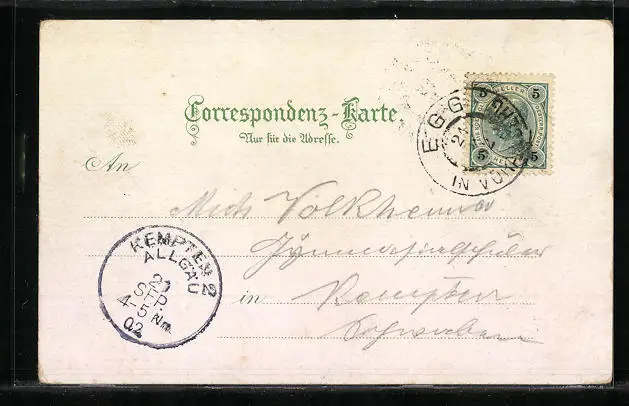 Correspondenz-Karte.
Nur für die Adresse.
An
Mich Volkheimer
Gymnasialschüler
in Kempten
Schwaben
EGG IN VORARLBERG
5 HELLER 5
5 HELLER 5
KEMPTEN 2
ALLGÄU
SEP.
4-5 Nm.
02